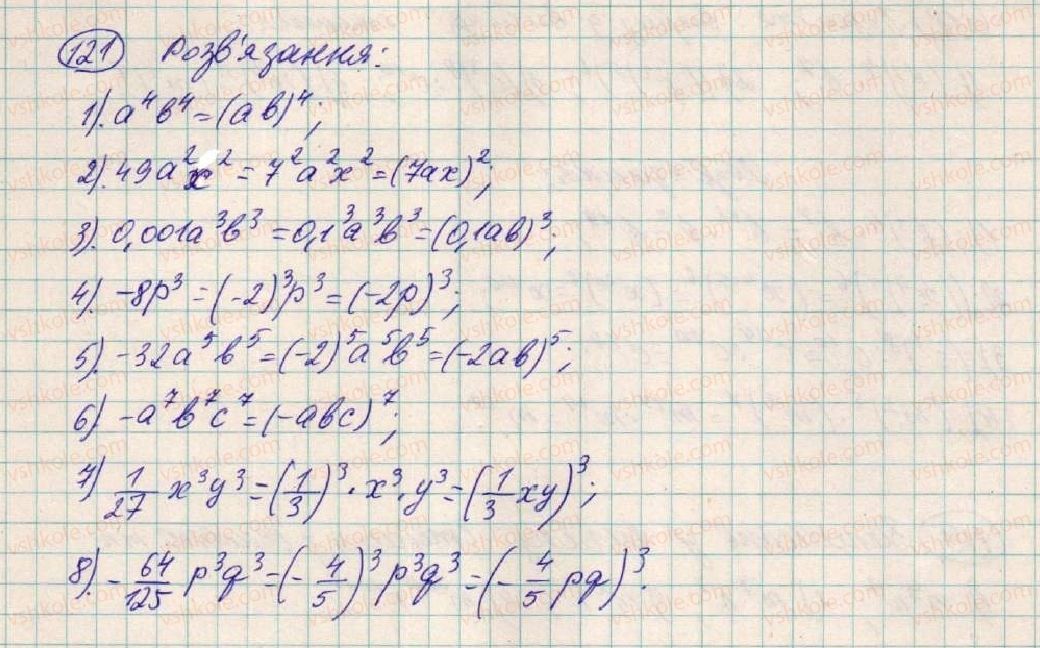 121 Розв'язання:
1). a⁴b⁴ = (ab)⁴;
2). 49a²x² = 7²a²x² = (7ax)²;
3). 0,001a³b³ = 0,1³a³b³ = (0,1ab)³;
4). -8p³ = (-2)³p³ = (-2p)³;
5). -32a⁵b⁵ = (-2)⁵a⁵b⁵ = (-2ab)⁵;
6). -a⁷b⁷c⁷ = (-abc)⁷;
7) 1/27 x³y³ = (1/3)³ · x³ · y³ = (1/3 xy)³;
8). -64/125 p³q³ = (-4/5)³ p³q³ = (-4/5 pq)³.
vshkole.com